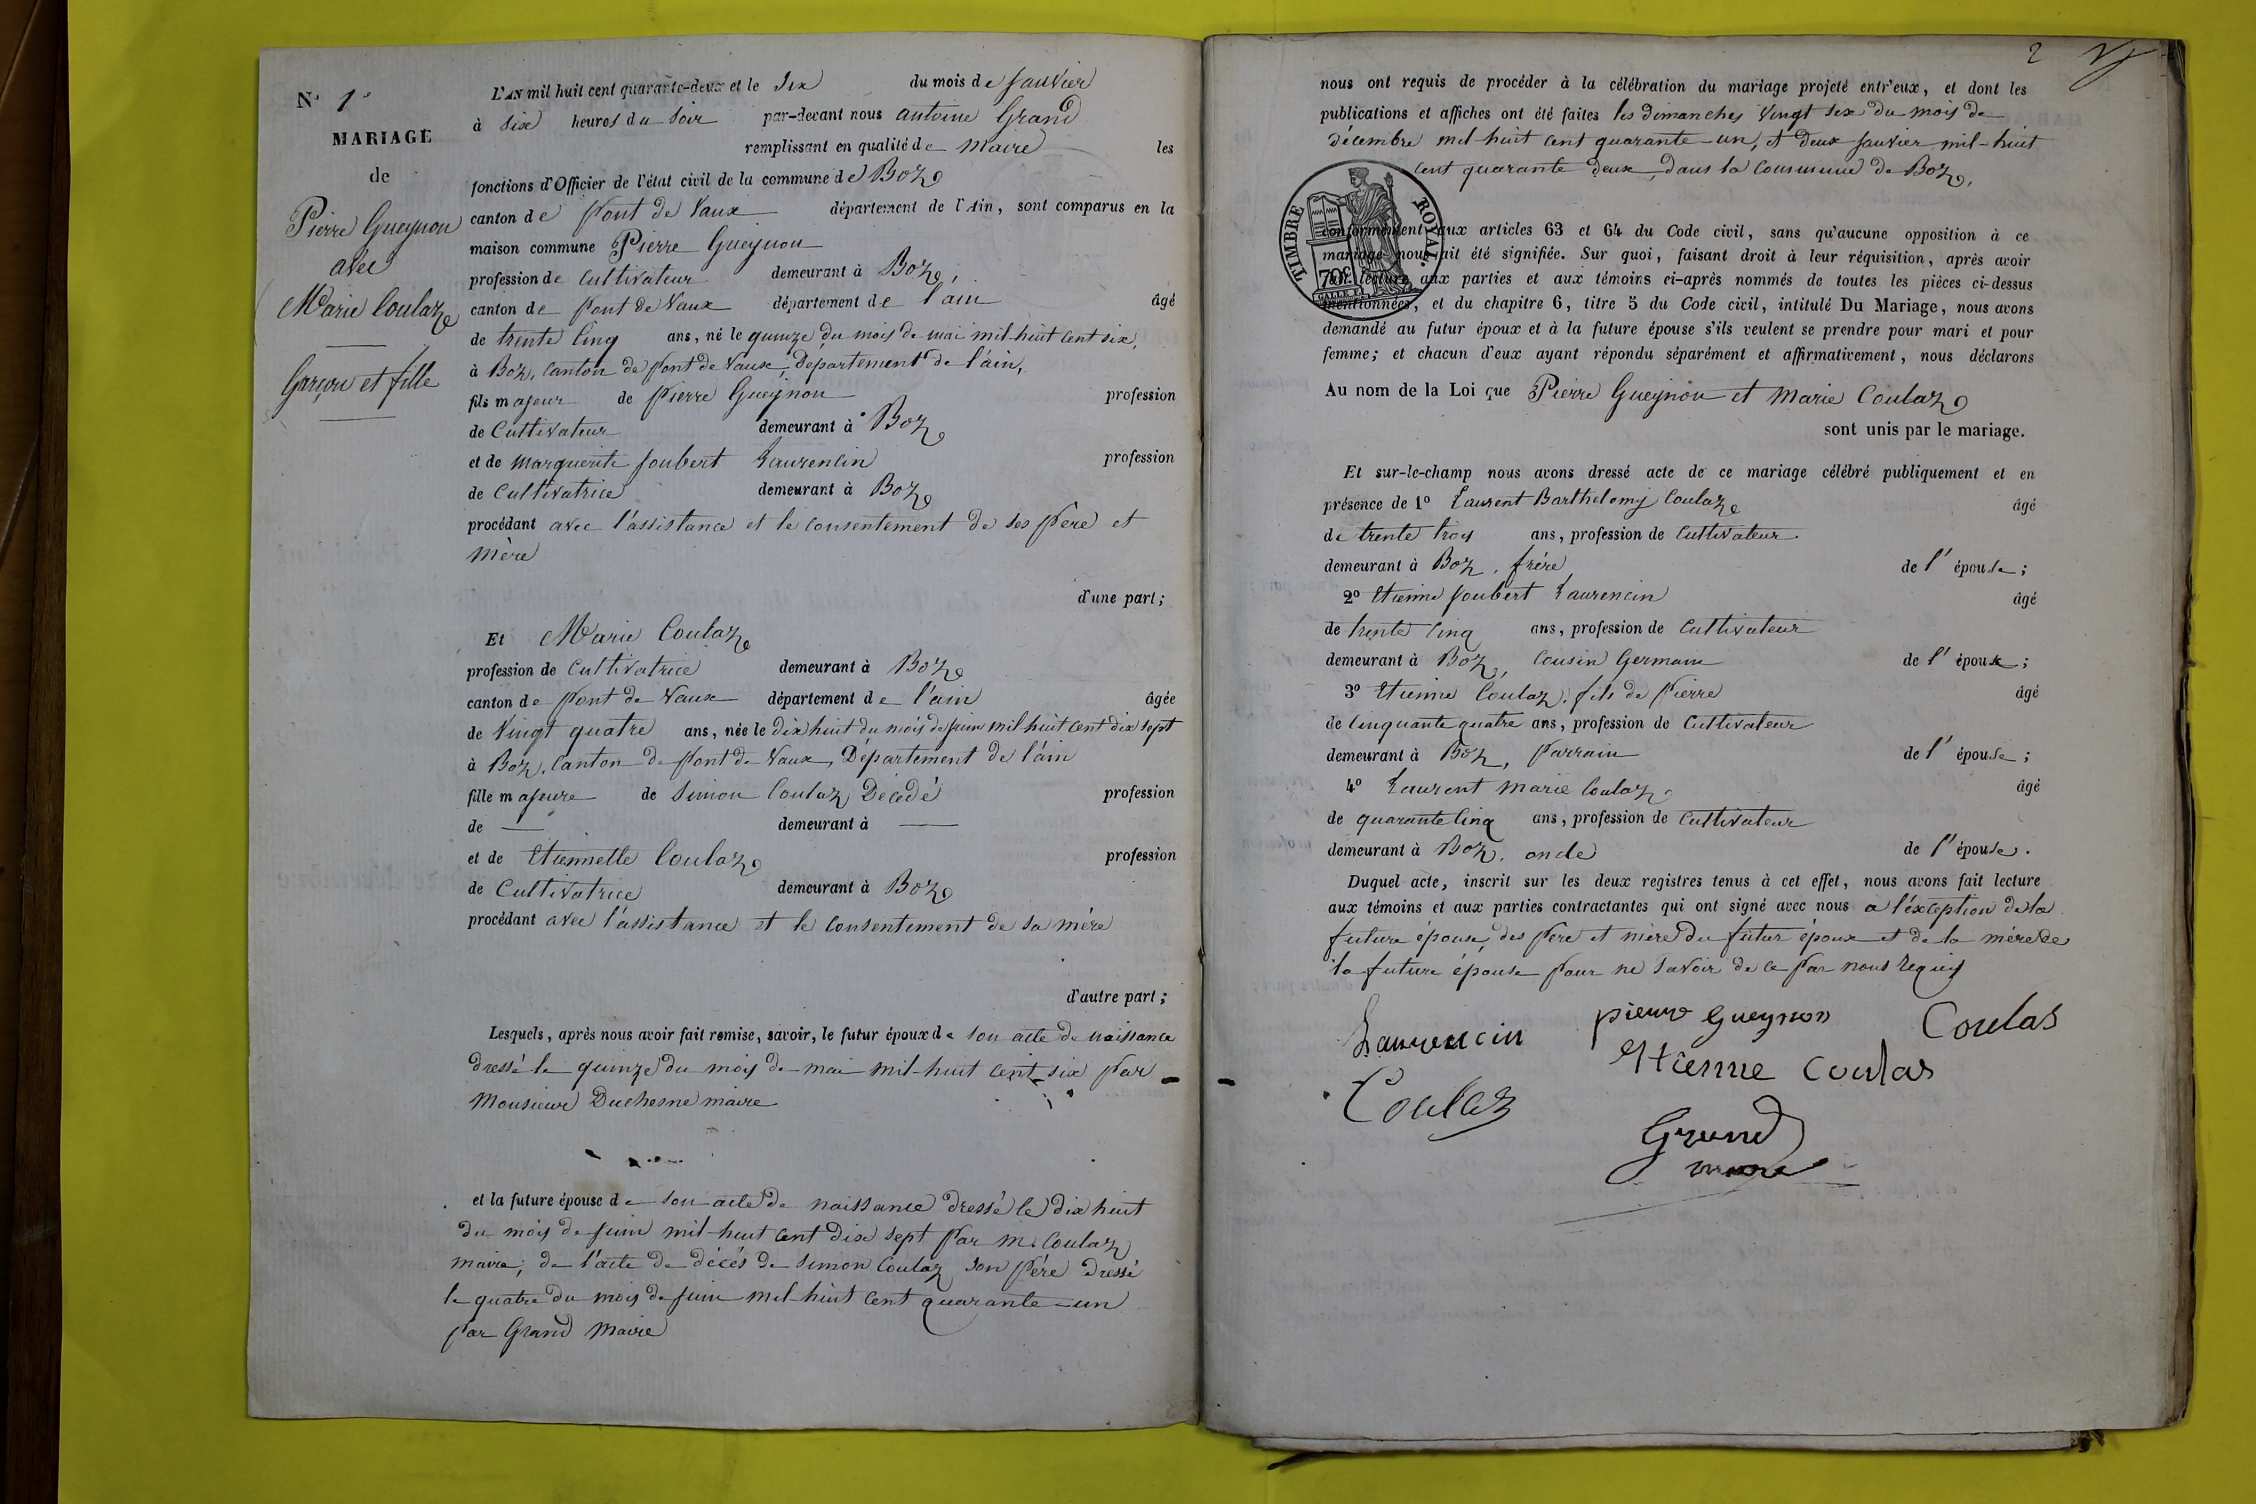 N° 1er
MARIAGE
de
Pierre Gueynon
avec
Marie Coulaz
Garçon et fille
L'AN mil huit cent quarante-deux et le six du mois de janvier
à six heures du soir par-devant nous antoine Grand
remplissant en qualité de maire les
fonctions d'Officier de l'état civil de la commune de Boz
canton de pont de Vaux département de l'Ain, sont comparus en la
maison commune Pierre Gueynon
profession de cultivateur demeurant à Boz,
canton de pont de Vaux département de l'ain âgé
de trente cinq ans, né le quinze du mois de mai mil-huit cent six
à Boz, canton de pont de Vaux, Département de l'ain,
fils majeur de pierre Gueynon profession
de Cultivateur demeurant à Boz
et de marguerite joubert Laurencin profession
de Cultivatrice demeurant à Boz
procédant avec l'assistance et le consentement de ses père et
mère
d'une part;
Et Marie Coulaz
profession de Cultivatrice demeurant à Boz
canton de pont de Vaux département de l'ain âgée
de vingt quatre ans, née le dix huit du mois de juin mil huit cent dix sept
à Boz, canton de pont de Vaux, Département de l'ain
fille majeure de Simon Coulaz Décédé profession
de — demeurant à —
et de Etiennette Coulaz profession
de Cultivatrice demeurant à Boz
procédant avec l'assistance et le consentement de sa mère
d'autre part;
Lesquels, après nous avoir fait remise, savoir, le futur époux de son acte de naissance
dressé le quinze du mois de mai mil-huit cent six par
Monsieur Duchesne maire
et la future épouse de son acte de naissance dressé le dix huit
du mois de juin mil-huit cent dix sept par m. Coulaz
maire, de l'acte de décès de simon Coulaz son père dressé
le quatre du mois de juin mil-huit cent quarante-un
par Grand maire
2
nous ont requis de procéder à la célébration du mariage projeté entr'eux, et dont les
publications et affiches ont été faites les dimanches vingt six du mois de
décembre mil-huit cent quarante-un, et deux janvier mil-huit
cent quarante deux, dans la commune de Boz,
TIMBRE ROYAL.
70c
conformément aux articles 63 et 64 du Code civil, sans qu'aucune opposition à ce
mariage nous ait été signifiée. Sur quoi, faisant droit à leur réquisition, après avoir
fait lecture aux parties et aux témoins ci-après nommés de toutes les pièces ci-dessus
mentionnées, et du chapitre 6, titre 5 du Code civil, intitulé Du Mariage, nous avons
demandé au futur époux et à la future épouse s'ils veulent se prendre pour mari et pour
femme; et chacun d'eux ayant répondu séparément et affirmativement, nous déclarons
Au nom de la Loi que Pierre Gueynon et marie Coulaz
sont unis par le mariage.
Et sur-le-champ nous avons dressé acte de ce mariage célébré publiquement et en
présence de 1° Laurent Barthelomy Coulaz âgé
de trente trois ans, profession de Cultivateur
demeurant à Boz, frère de l'épouse;
2° Etienne joubert Laurencin âgé
de trente cinq ans, profession de Cultivateur
demeurant à Boz, cousin Germain de l'époux;
3° Etienne Coulaz, fils de Pierre âgé
de cinquante quatre ans, profession de Cultivateur
demeurant à Boz, parrain de l'épouse;
4° Laurent marie Coulaz âgé
de quarante cinq ans, profession de Cultivateur
demeurant à Boz, oncle de l'épouse.
Duquel acte, inscrit sur les deux registres tenus à cet effet, nous avons fait lecture
aux témoins et aux parties contractantes qui ont signé avec nous a l'éxception de la
future épouse, des père et mère du futur époux et de la mère de
la future épouse pour ne savoir de ce par nous requis
Laurencin pierre Gueynon Coulas
Etienne Coulas
Coulaz
Grand
maire